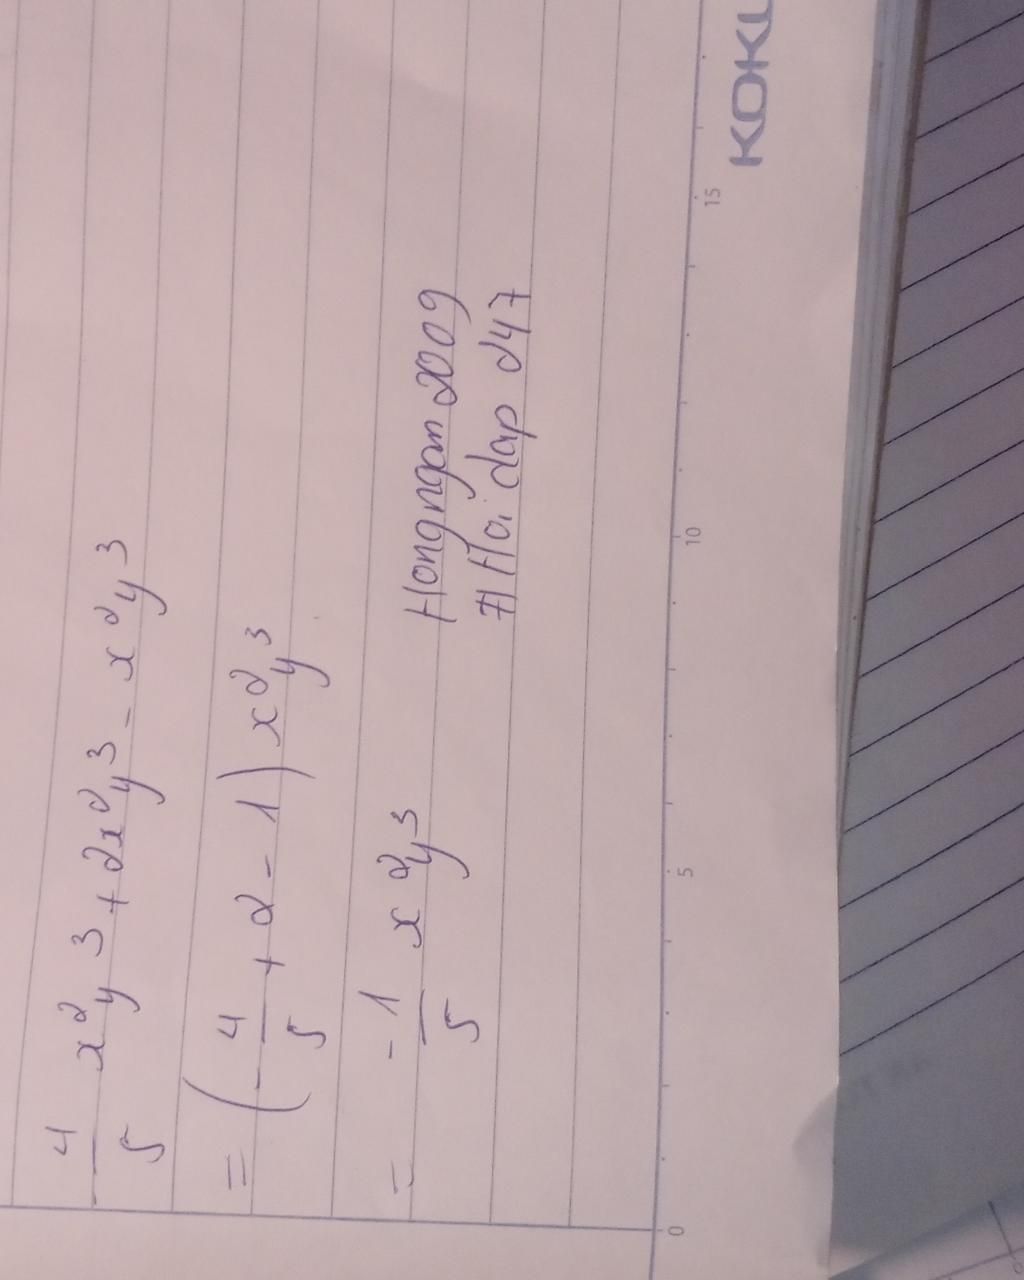 -4/5 x²y³ + 2x²y³ - x²y³
= (-4/5 + 2 - 1) x²y³
= -1/5 x²y³
Hongngan2009
# Hoi dap 247
0 5 10 15
KOKU